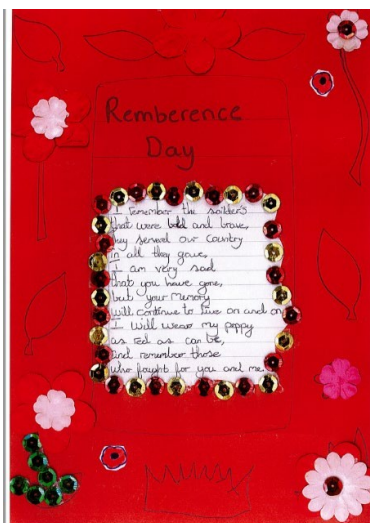 Remberence
Day
I remember the soilders
that were bold and brave,
they served our Country
in all they gave,
I am very sad
that you have gone,
but your memory
will continue to live on and on,
I will wear my poppy
as red as can be,
and remember those
who fought for you and me.